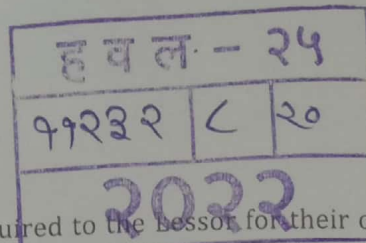 ह व ल. - २५
११२३२ ८ २०
२०२२
uired to the Lessor for their